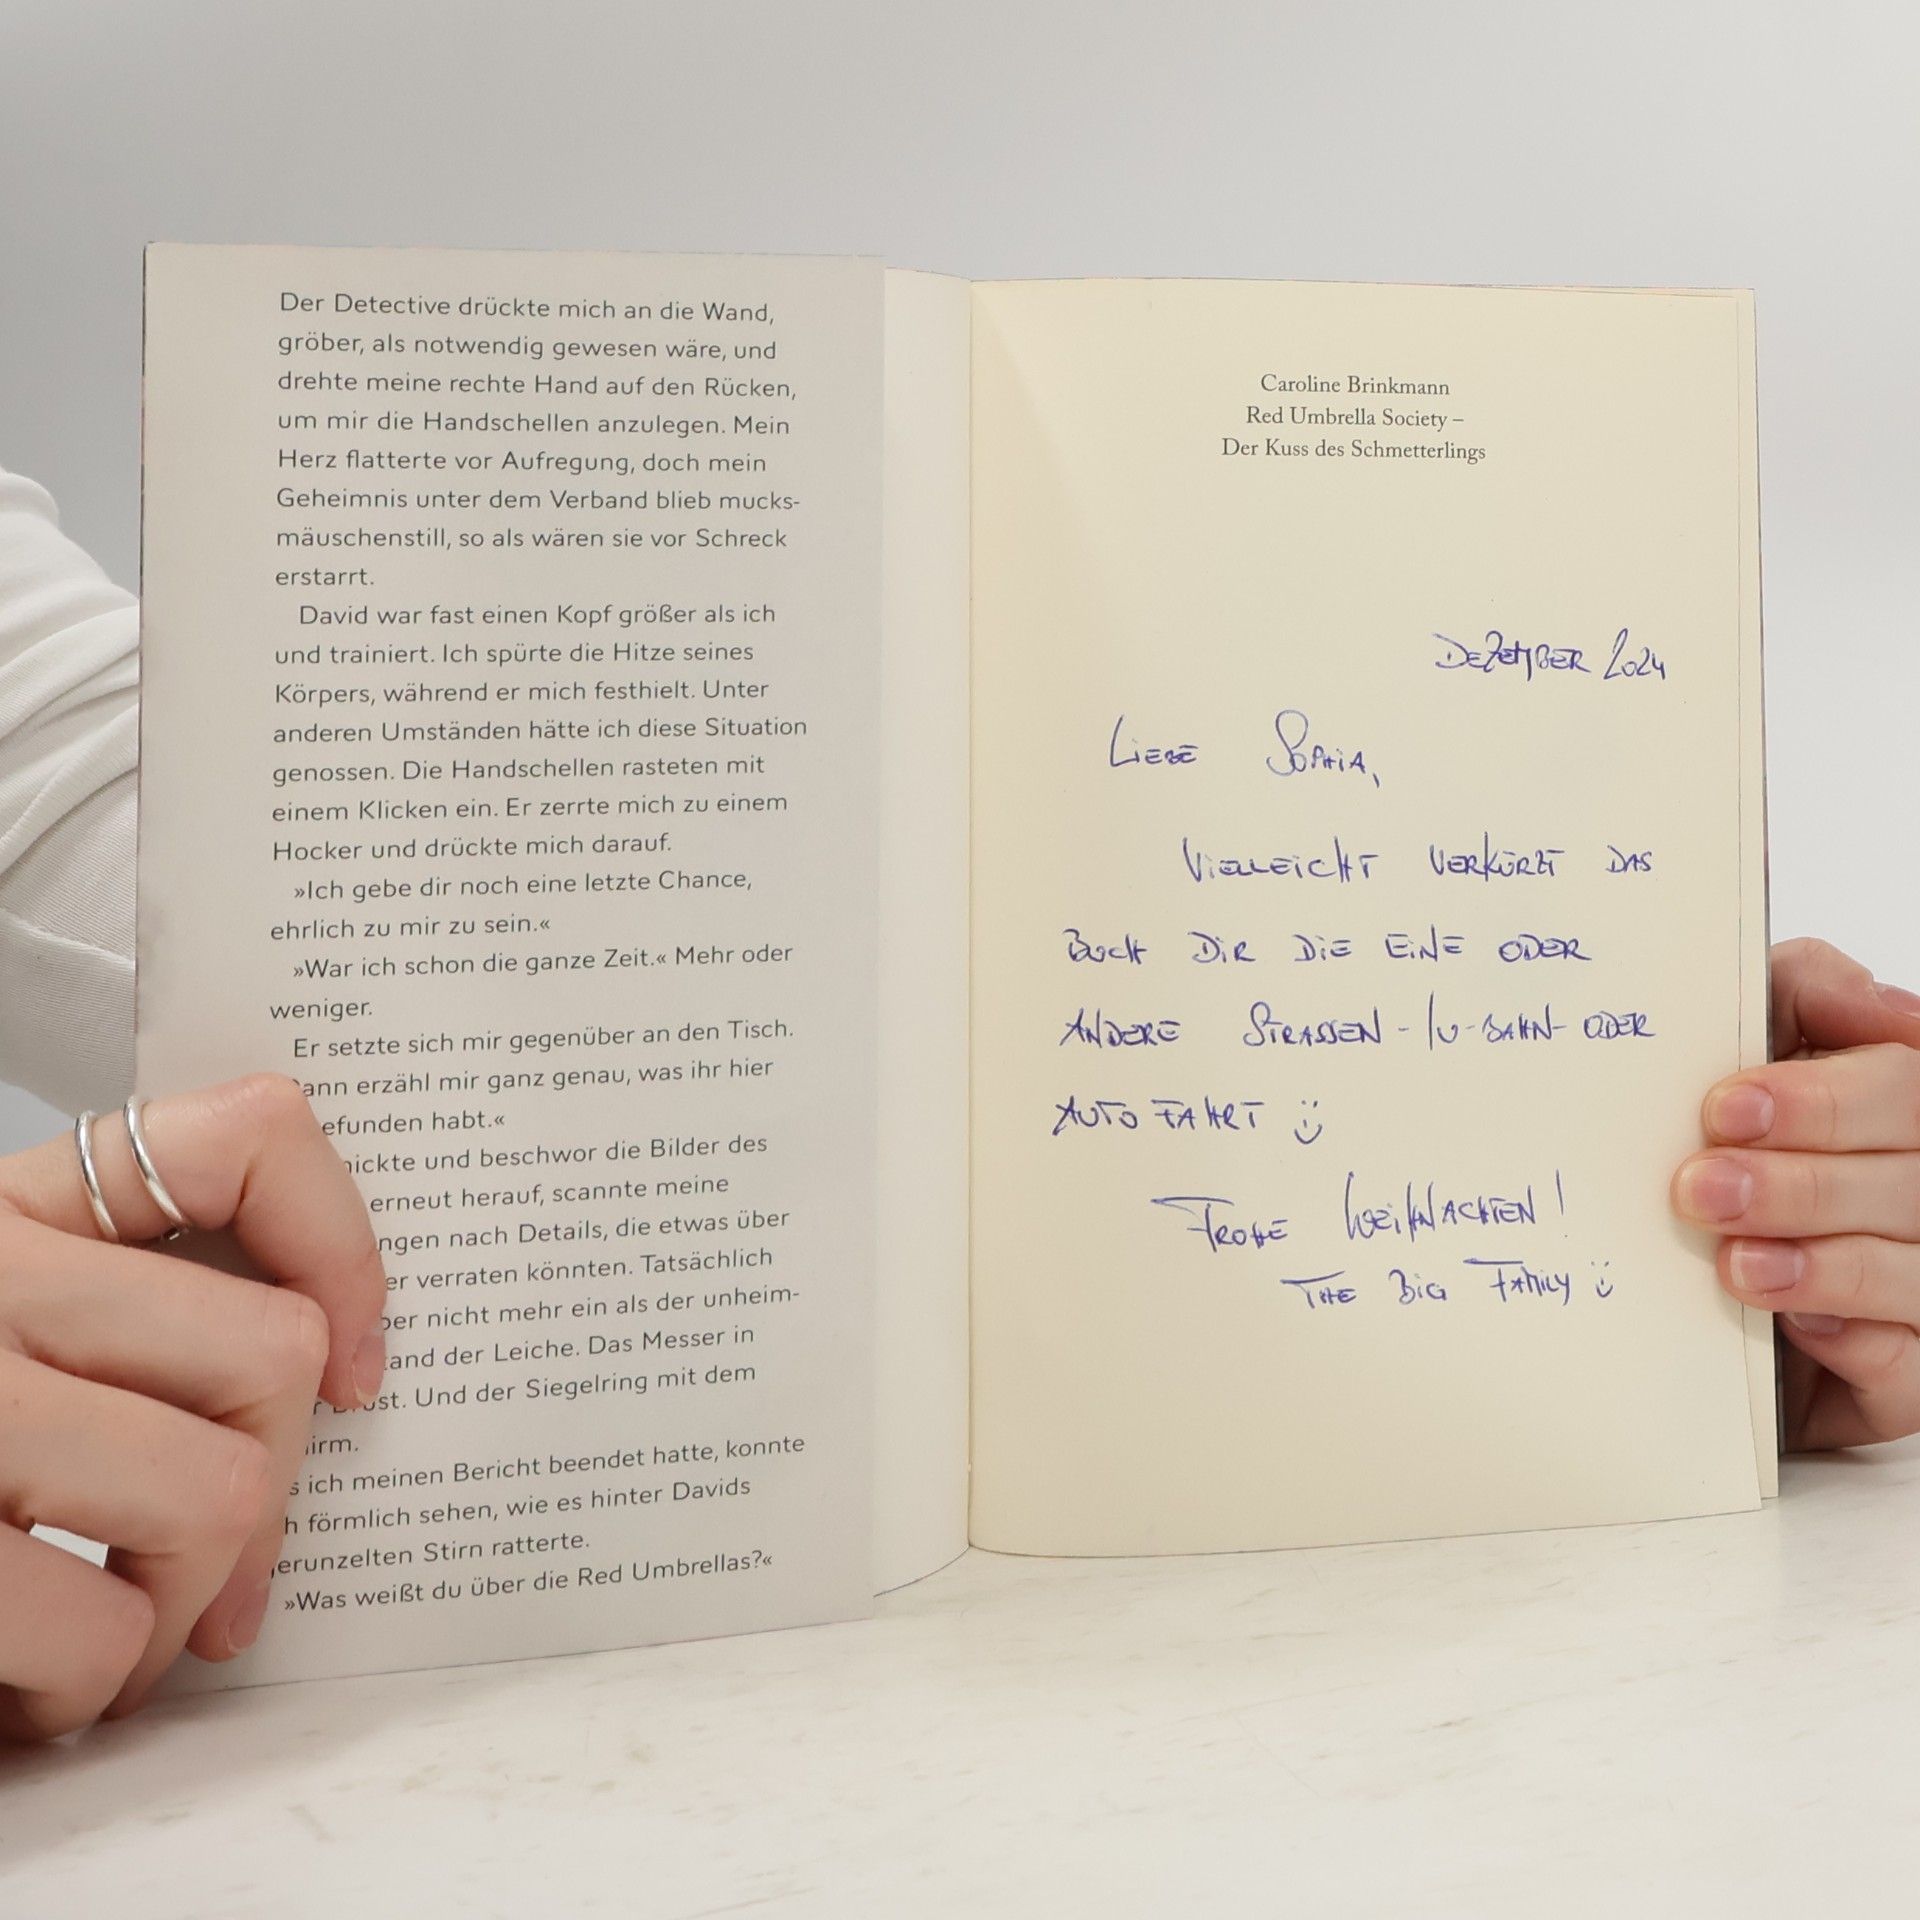 Der Detective drückte mich an die Wand,
gröber, als notwendig gewesen wäre, und
drehte meine rechte Hand auf den Rücken,
um mir die Handschellen anzulegen. Mein
Herz flatterte vor Aufregung, doch mein
Geheimnis unter dem Verband blieb mucks-
mäuschenstill, so als wären sie vor Schreck
erstarrt.
David war fast einen Kopf größer als ich
und trainiert. Ich spürte die Hitze seines
Körpers, während er mich festhielt. Unter
anderen Umständen hätte ich diese Situation
genossen. Die Handschellen rasteten mit
einem Klicken ein. Er zerrte mich zu einem
Hocker und drückte mich darauf.
»Ich gebe dir noch eine letzte Chance,
ehrlich zu mir zu sein.«
»War ich schon die ganze Zeit.« Mehr oder
weniger.
Er setzte sich mir gegenüber an den Tisch.
erzähl mir ganz genau, was ihr hier
habt.«
und beschwor die Bilder des
erneut herauf, scannte meine
nach Details, die etwas über
verraten könnten. Tatsächlich
nicht mehr ein als der unheim-
der Leiche. Das Messer in
Und der Siegelring mit dem
ich meinen Bericht beendet hatte, konnte
förmlich sehen, wie es hinter Davids
Stirn ratterte.
»Was weißt du über die Red Umbrellas?«
Caroline Brinkmann
Red Umbrella Society –
Der Kuss des Schmetterlings
DEZEMBER 2024
LIEBE SOPHIA,
VIELLEICHT VERKÜRZT DAS
BUCH DIR DIE EINE ODER
ANDERE STRASSEN-/U-BAHN- ODER
AUTOFAHRT :)
FROHE WEIHNACHTEN!
THE BIG FAMILY :)